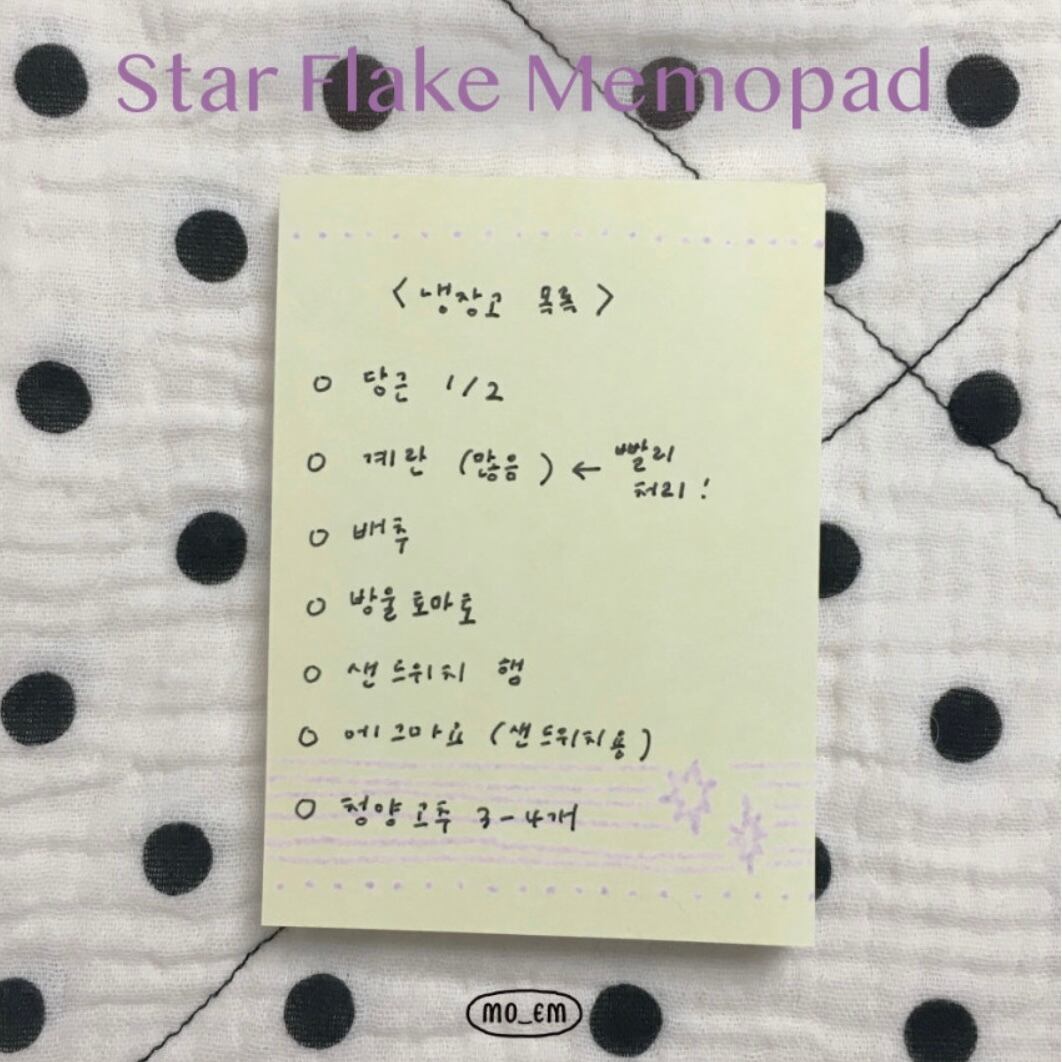 Star Flake Memopad
< 냉장고 목록 >
o 당근 1/2
o 계란 (많음) ← 빨리
처리!
o 배추
o 방울토마토
o 샌드위치 햄
o 에그마요 (샌드위치용)
o 청양고추 3-4개
MO_EM